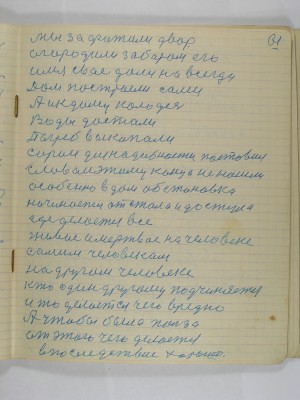 61
мы за физкали двор
огородили забаром его
имя свае дали на всегда
Дом построили сами
А индиму колодец
Воды достали
Погреб выкапали
сарай для надобности поставили
словам этому конца не нашли
особенно в дом обстановка
начинается от стола и до стула
где делается все
живое и мертвое на человеке
самим человеком
на другом человеке
кто один другому подчиняется
и то делается чего вредно
А чтобы была польза
от этого чего делается
в последствие хорошо.